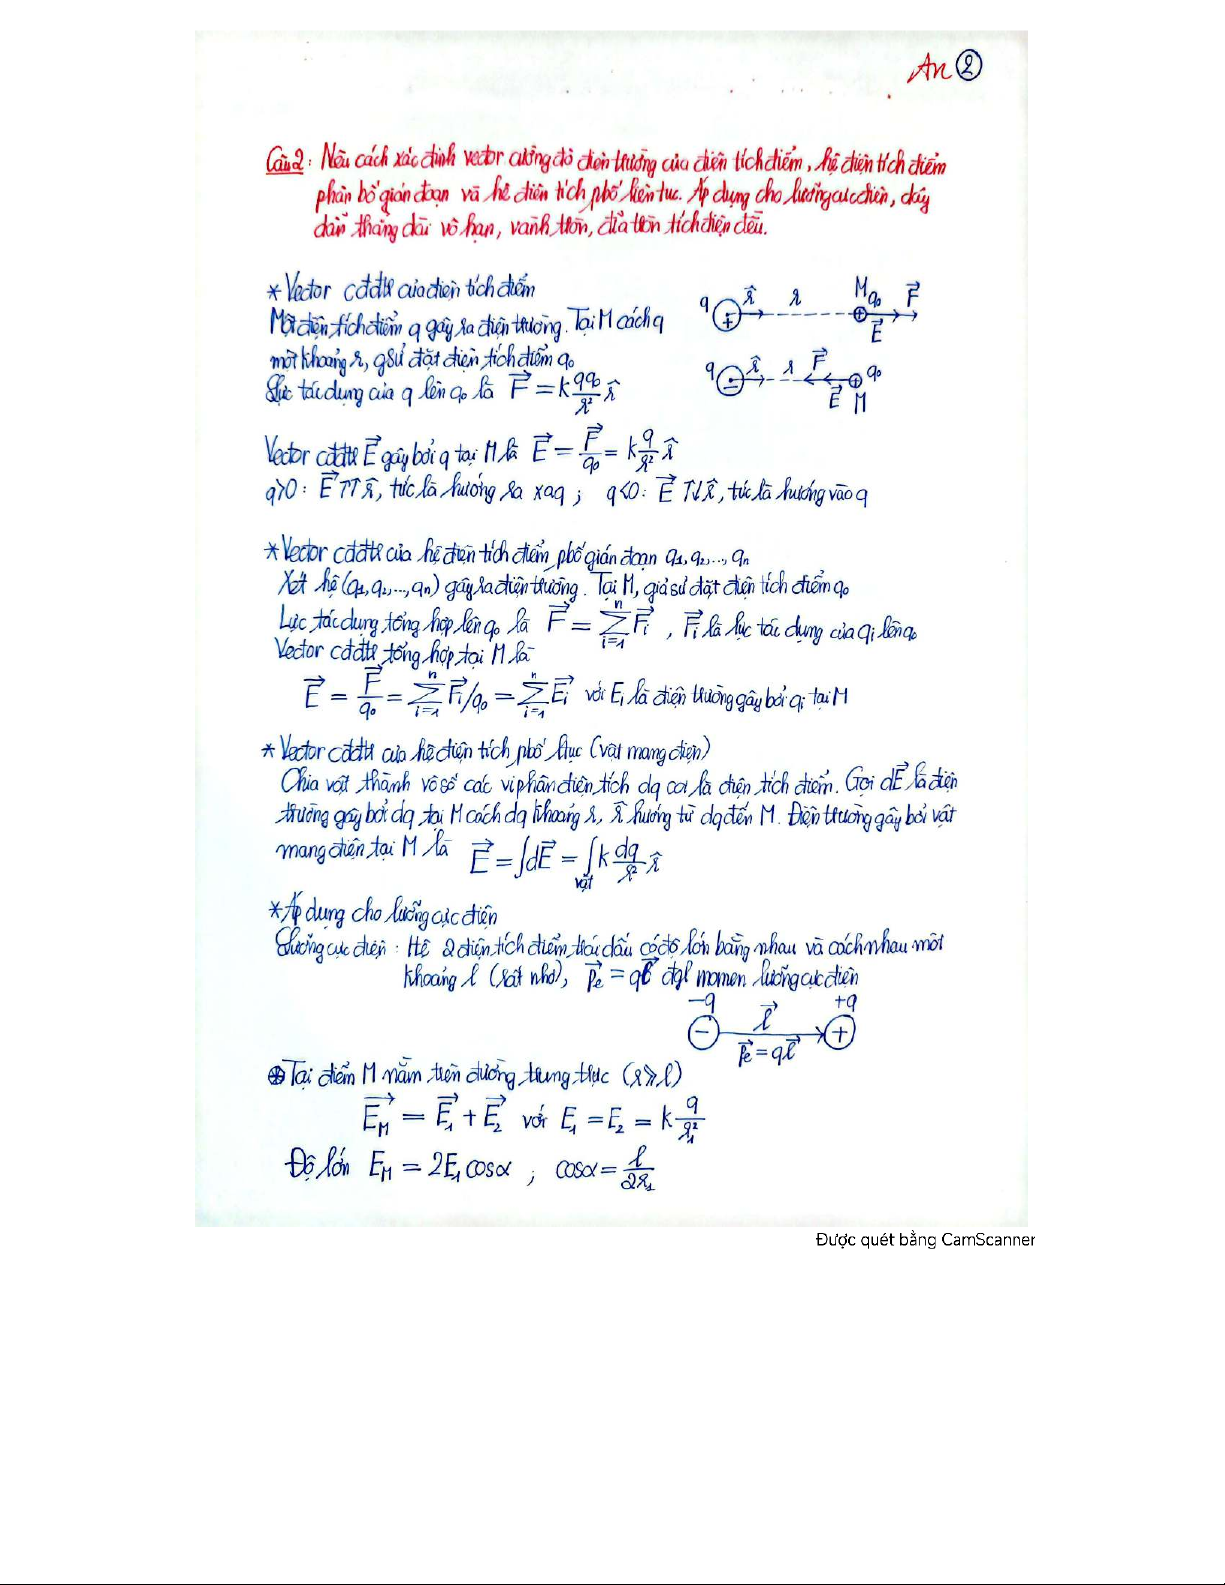 An ②
Câu 2: Nêu cách xác định vector cường độ điện trường của điện tích điểm, hệ điện tích điểm
phân bố gián đoạn và hệ điện tích phbố liên tục. Áp dụng cho lưỡng cực điện, dây
dẫn thẳng dài vô hạn, vành tròn, đĩa tròn tích điện đều.
* Vector cđđtr của điện tích điểm
Một điện tích điểm q gây ra điện trường. Tại M cách q
một khoảng r, gsử đặt điện tích điểm q₀
Lực tác dụng của q lên q₀ là F⃗ = k qq₀/r² r̂
q + r̂ r M q₀ F⃗ E⃗
q − r̂ r F⃗ q₀ E⃗ M
Vector cđđtr E⃗ gây bởi q tại M là E⃗ = F⃗/q₀ = k q/r² r̂
q>0: E⃗ ↑↑ r̂, tức là hướng ra xa q ; q<0: E⃗ ↑↓ r̂, tức là hướng vào q
* Vector cđđtr của hệ điện tích điểm phbố gián đoạn q₁, q₂, ..., qₙ
Xét hệ (q₁, q₂, ..., qₙ) gây ra điện trường. Tại M, giả sử đặt điện tích điểm q₀
Lực tác dụng tổng hợp lên q₀ là F⃗ = Σⁿᵢ₌₁ F⃗ᵢ , F⃗ᵢ là lực tác dụng của qᵢ lên q₀
Vector cđđtr tổng hợp tại M là
E⃗ = F⃗/q₀ = Σⁿᵢ₌₁ F⃗ᵢ/q₀ = Σⁿᵢ₌₁ E⃗ᵢ với Eᵢ là điện trường gây bởi qᵢ tại M
* Vector cđđtr của hệ điện tích phbố ltục (vật mang điện)
Chia vật thành vô số các vi phân điện tích dq coi là điện tích điểm. Gọi dE⃗ là điện
trường gây bởi dq tại M cách dq khoảng r, r̂ hướng từ dq đến M. Điện trường gây bởi vật
mang điện tại M là E⃗ = ∫dE⃗ = ∫vật k dq/r² r̂
* Áp dụng cho lưỡng cực điện
Lưỡng cực điện : Hệ 2 điện tích điểm trái dấu có độ lớn bằng nhau và cách nhau một
khoảng l (rất nhỏ), p⃗ₑ = ql⃗ đgl momen lưỡng cực điện
−q l⃗ +q
− +
p⃗ₑ = ql⃗
⊕ Tại điểm M nằm trên đường trung trực (r≫l)
E⃗_M = E⃗₁ + E⃗₂ với E₁ = E₂ = k q/r₁²
Độ lớn E_M = 2E₁cosα ; cosα = l/2r₁
Được quét bằng CamScanner